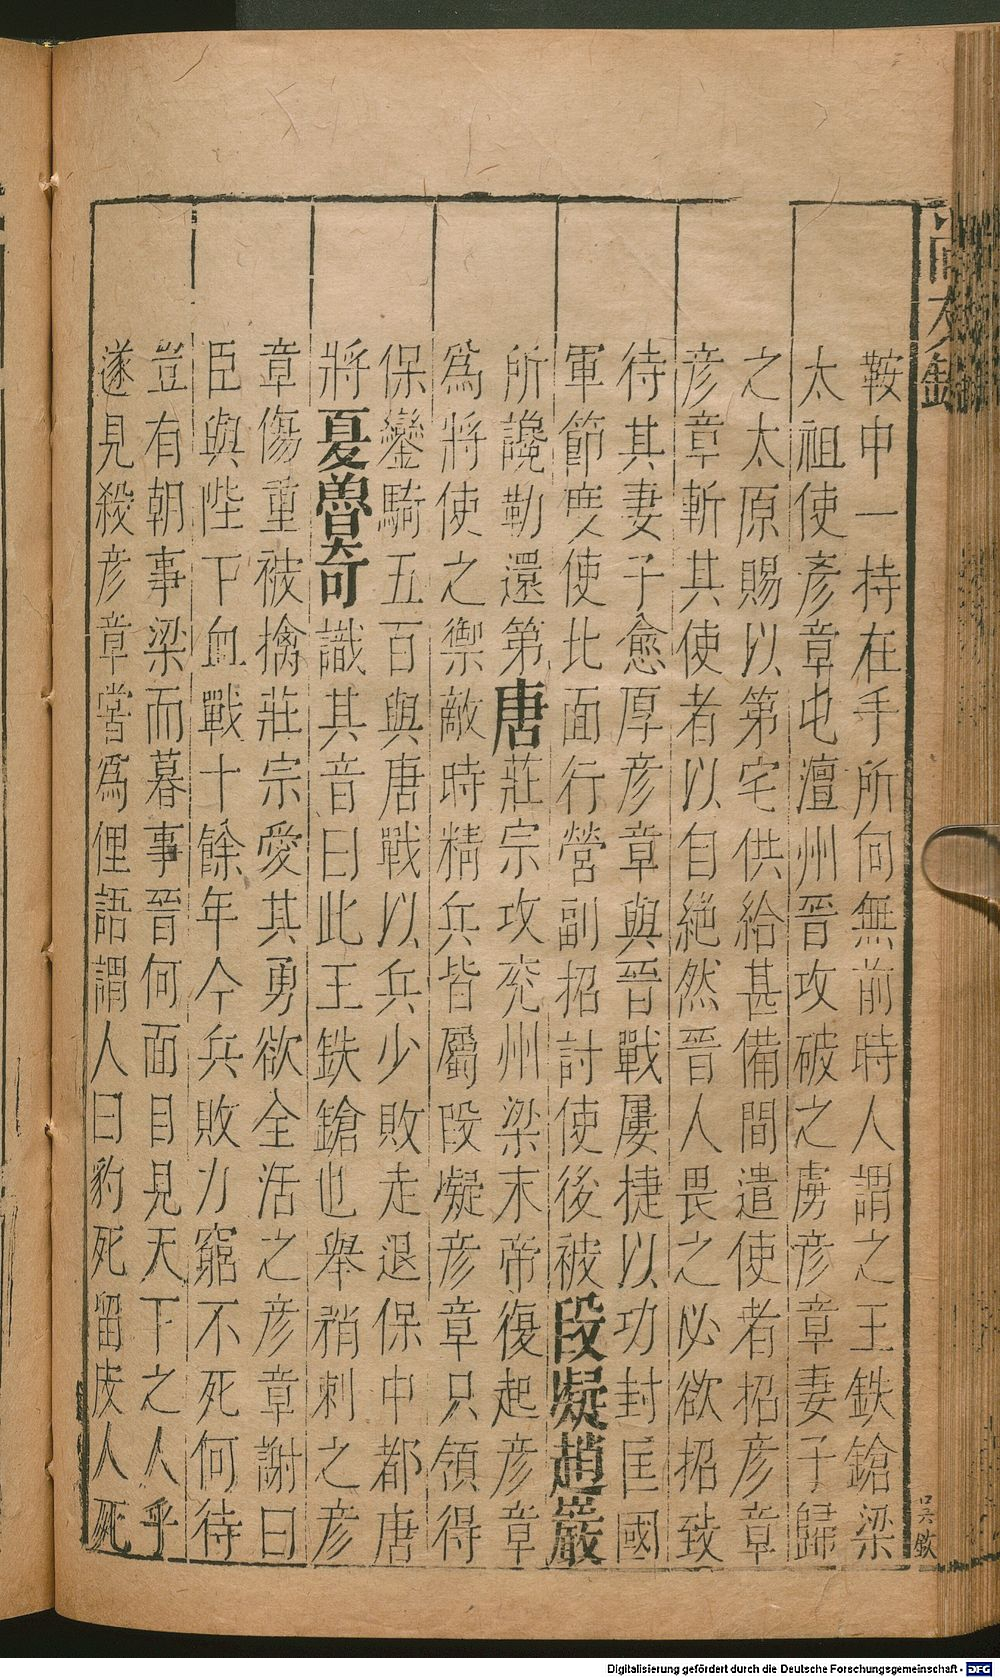 鞍中一持在手所向無前時人謂之王鉄鎗梁
太祖使彥章屯澶州晉攻破之虜彥章妻子歸
之太原賜以第宅供給甚備間遣使者招彥章
彥章斬其使者以自絶然晉人畏之必欲招致
待其妻子愈厚彥章與晉戰屢捷以功封匡國
軍節度使北面行營副招討使後被段凝趙巖
所讒勒還第唐莊宗攻兖州梁末帝復起彥章
爲將使之禦敵時精兵皆屬段凝彥章只領得
保鑾騎五百與唐戰以兵少敗走退保中都唐
將夏魯奇識其音曰此王鉄鎗也舉矟刺之彥
章傷重被擒莊宗愛其勇欲全活之彥章謝曰
臣與陛下血戰十餘年今兵敗力窮不死何待
豈有朝事梁而暮事晉何面目見天下之人乎
遂見殺彥章嘗爲俚語謂人曰豹死留皮人死
Digitalisierung gefördert durch die Deutsche Forschungsgemeinschaft - DFG